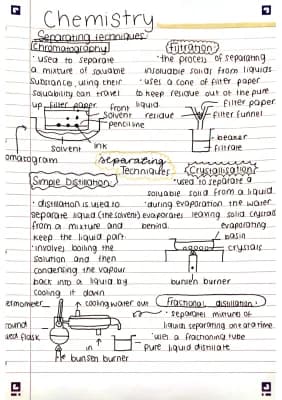 Chemistry
Separating techniques
Chromatography
· used to separate
a mixture of soluable
substance, using their
soluability can travel
up filter paper
front
solvent
pencil line
solvent
ink
omatogram
Filtration
· the process of separating
insoluable solids from liquids
· uses a cone of filter paper
to keep residue out of the pure
liquid.
residue
filter paper
filter funnel
beaker
filtrate
separating
Techniques
Simple Distillation
· distillation is used to
separate liquid (the solvent)
from a mixture and
keep the liquid part.
· involves boiling the
solution and then
condensing the vapour
back into a liquid by
cooling it down
Crystallisation
· used to separate a
soluable solid from a liquid.
· during evaporation the water
evaporates leaving solid crystals
behind.
evaporating
basin
crystals
bunsen burner
ermometer
cooling water out
round
flask
in
pure liquid distilate
bunsen burner
Fractional distillation
· separates mixture of
liquids separating one at a time.
· uses a fractioning tube